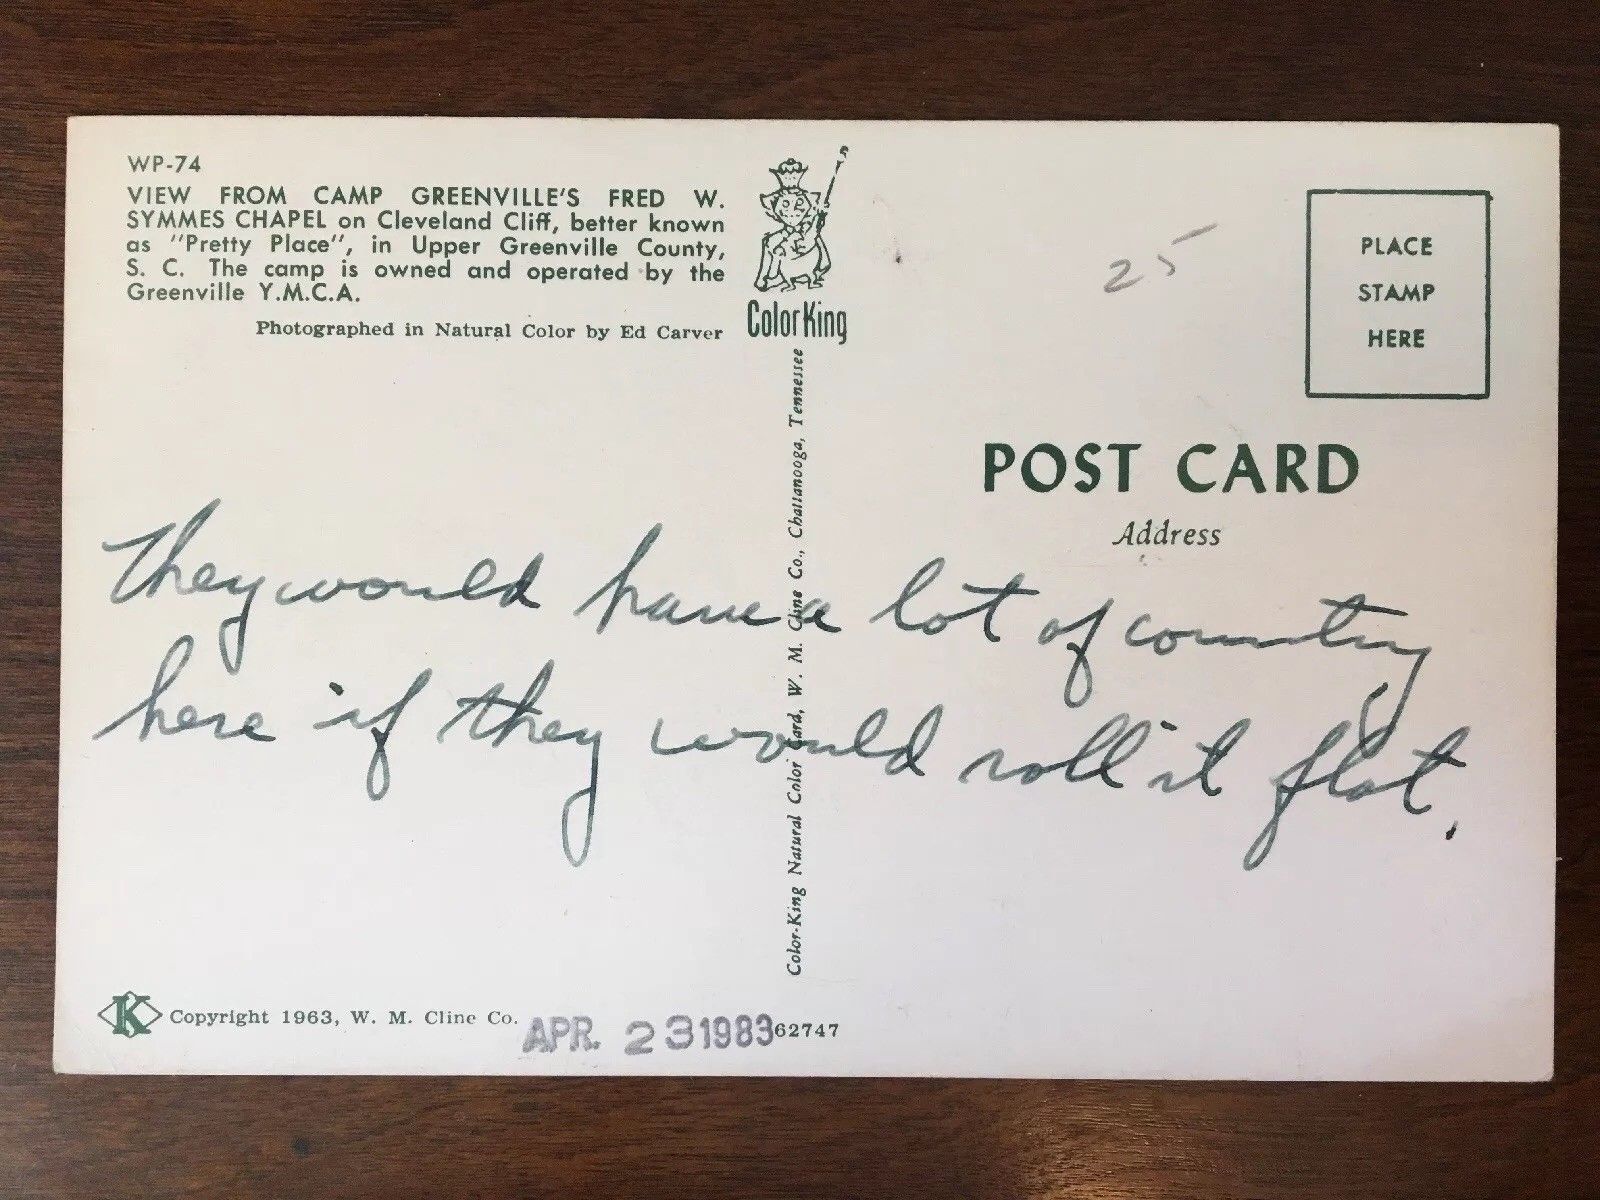 WP-74
VIEW FROM CAMP GREENVILLE'S FRED W.
SYMMES CHAPEL on Cleveland Cliff, better known
as "Pretty Place", in Upper Greenville County,
S. C. The camp is owned and operated by the
Greenville Y.M.C.A.
Photographed in Natural Color by Ed Carver
ColorKing
Color-King Natural Color Card, W. M. Cline Co., Chattanooga, Tennessee
25
PLACE
STAMP
HERE
POST CARD
Address
They would have a lot of country
here if they would roll it flat.
K Copyright 1963, W. M. Cline Co.
APR. 23 1983
62747